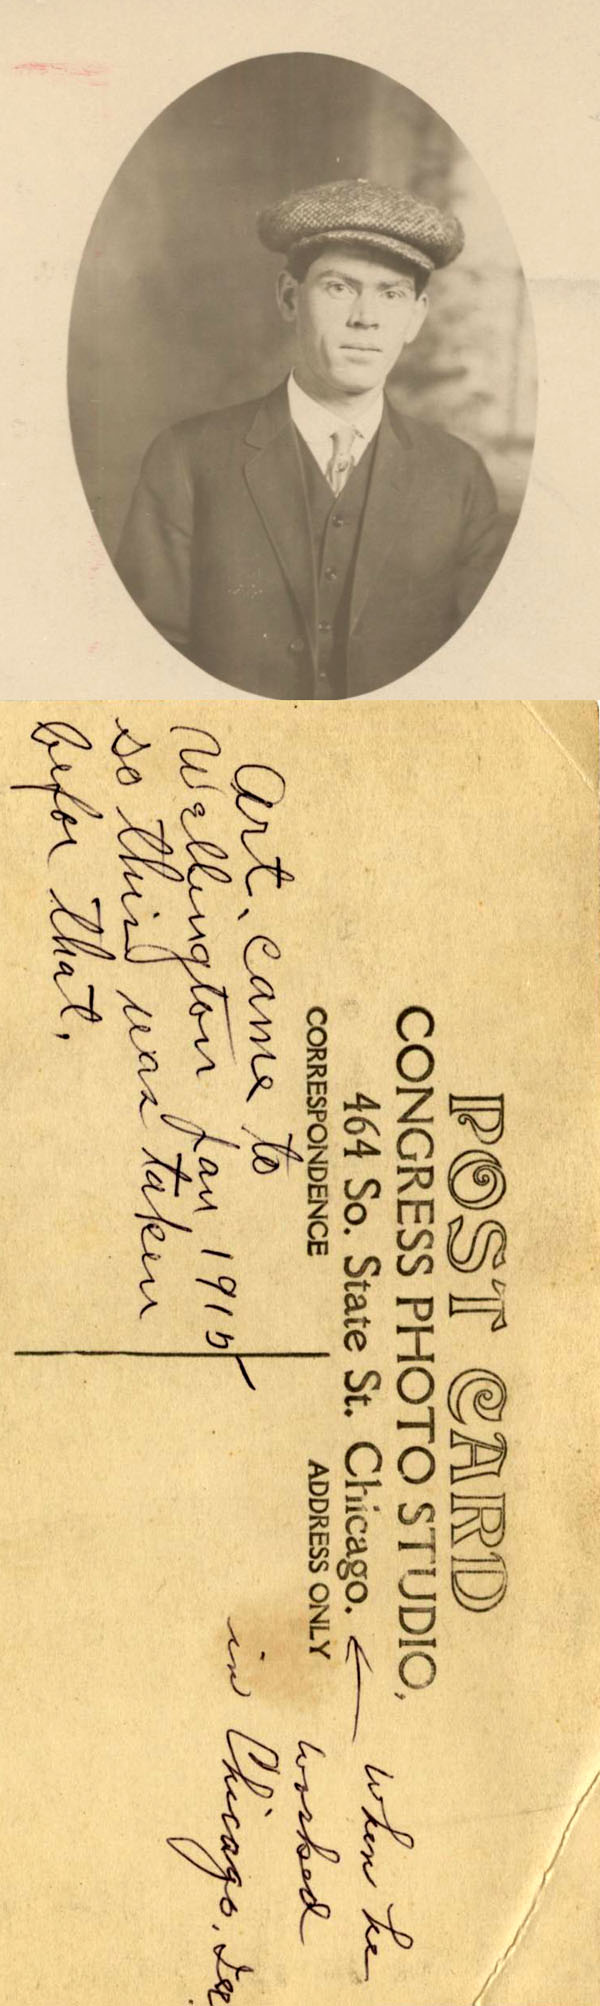 POST CARD
CONGRESS PHOTO STUDIO,
464 So. State St. Chicago.
CORRESPONDENCE
ADDRESS ONLY
Art. came to
Wellington Jan 1915
so this was taken
befor that.
← When he
worked
in Chicago.